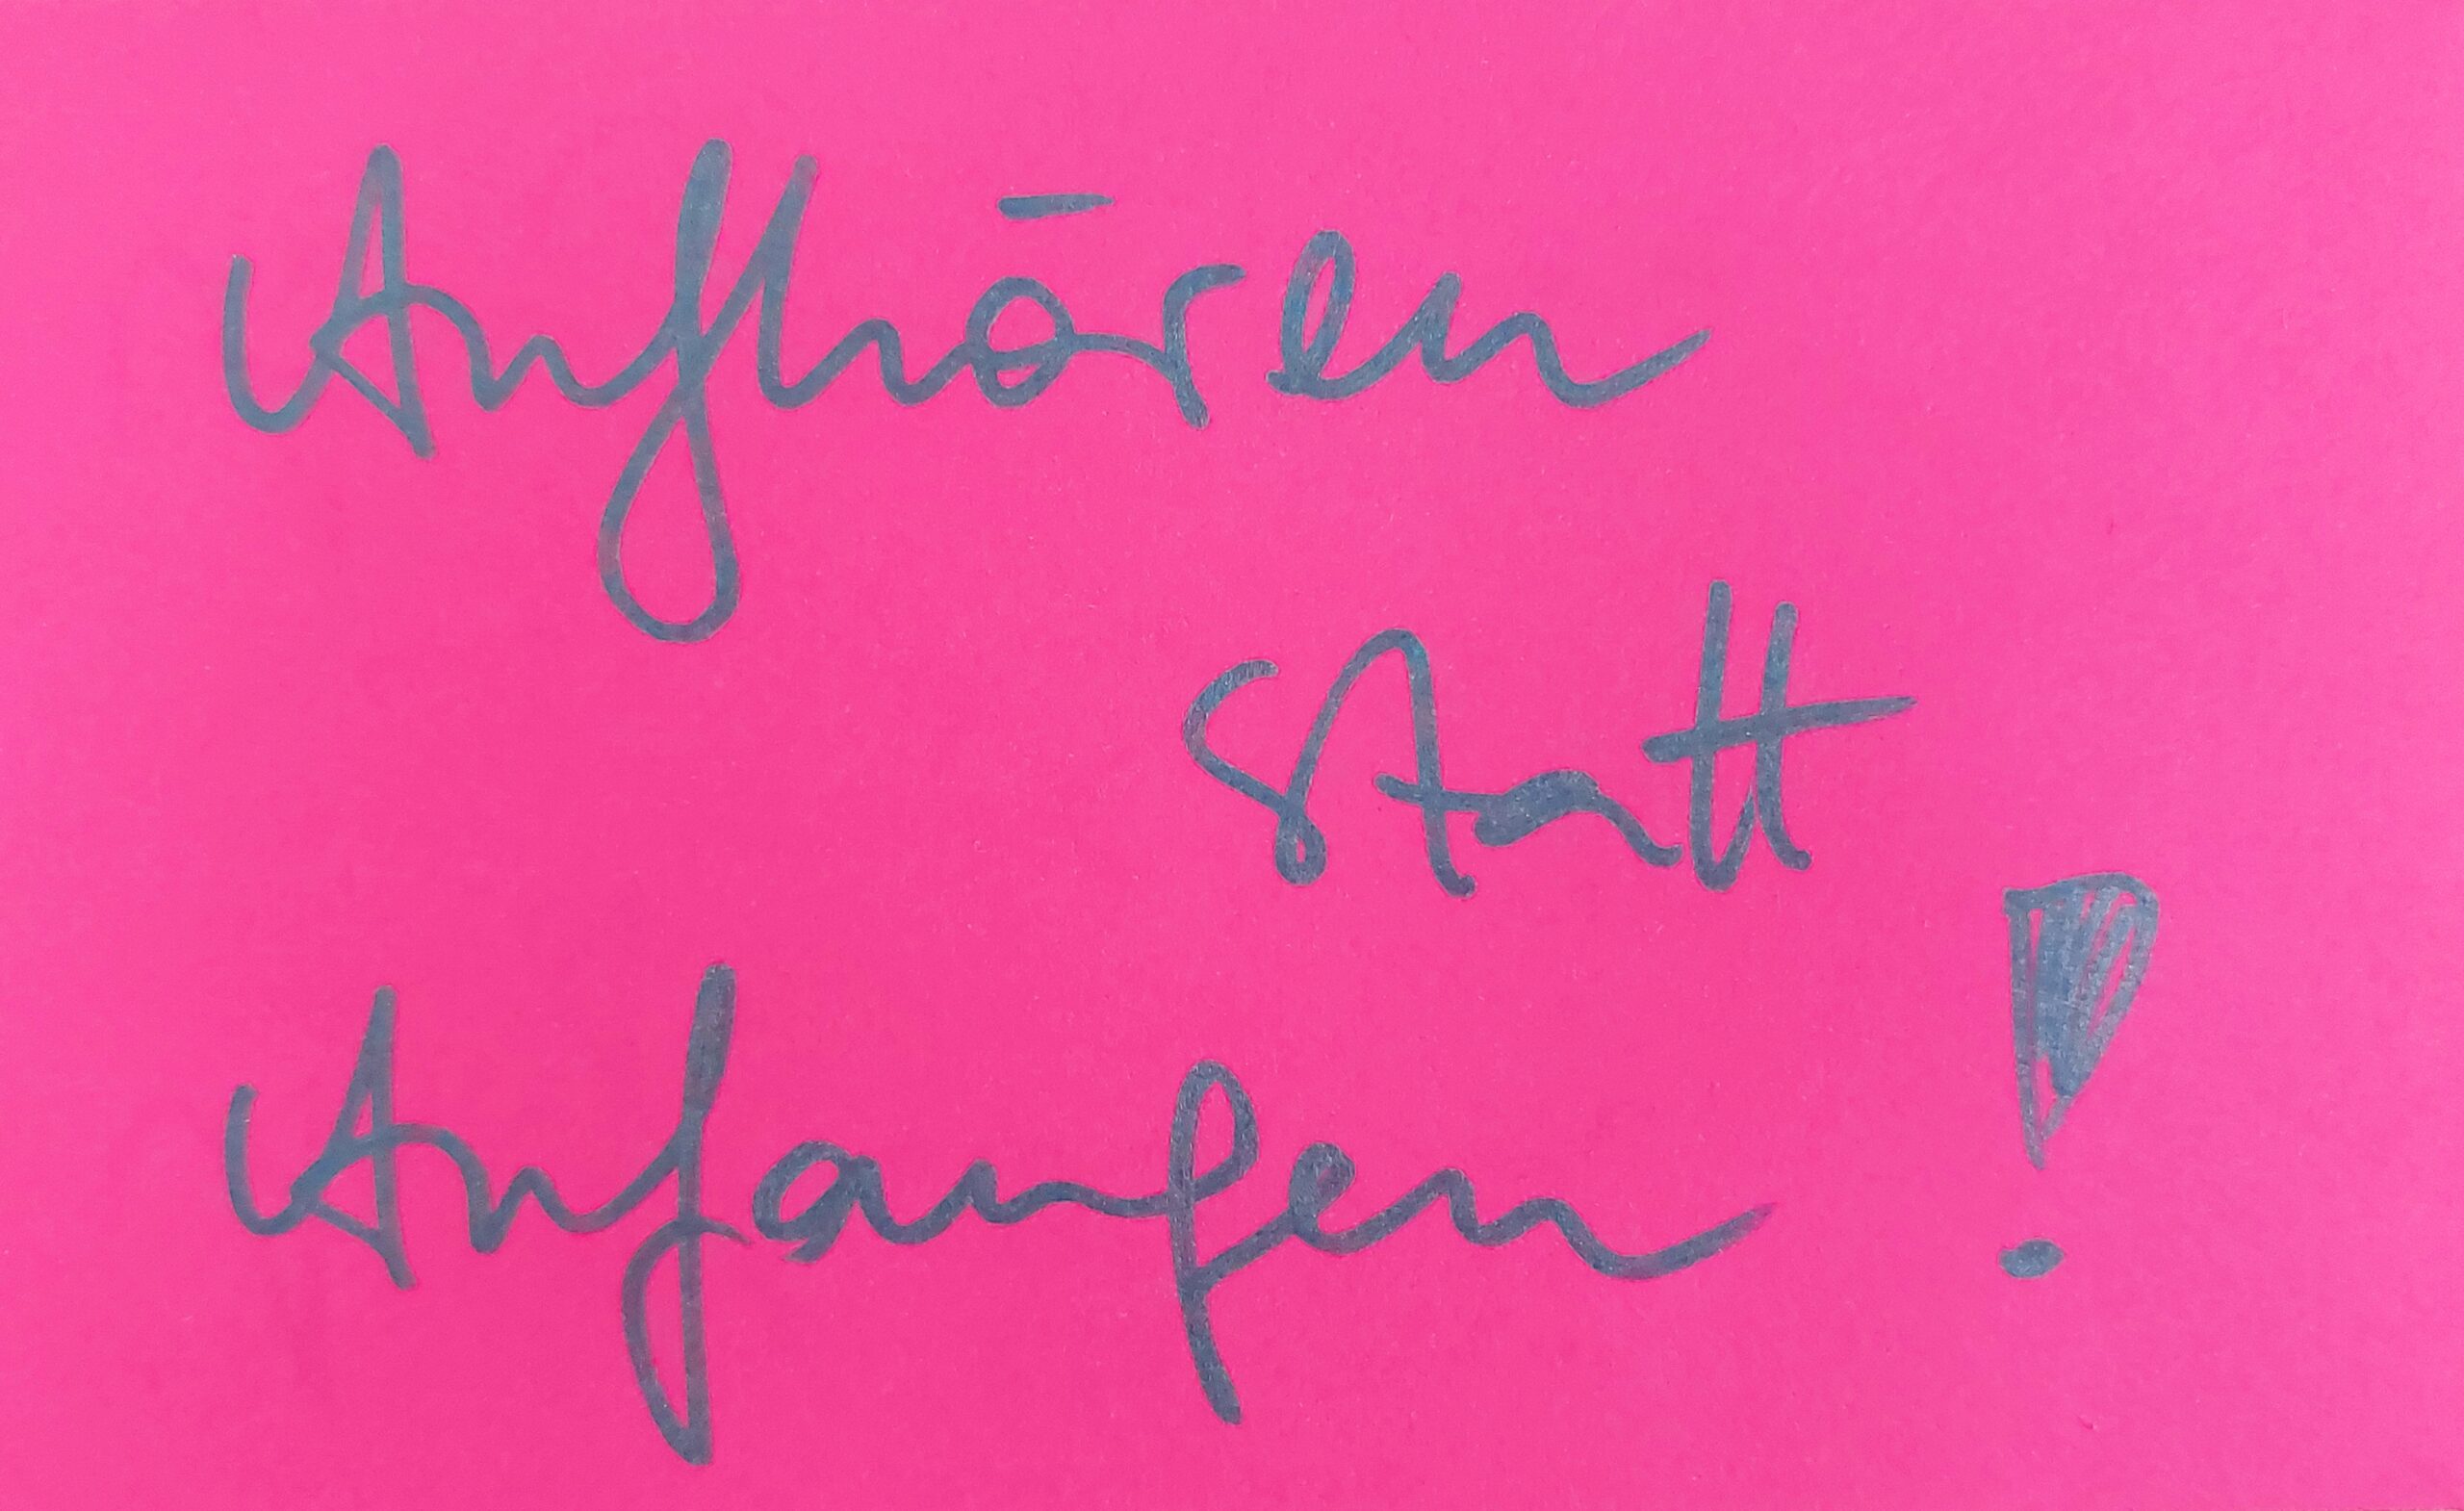 Aufhören
statt
Anfangen!